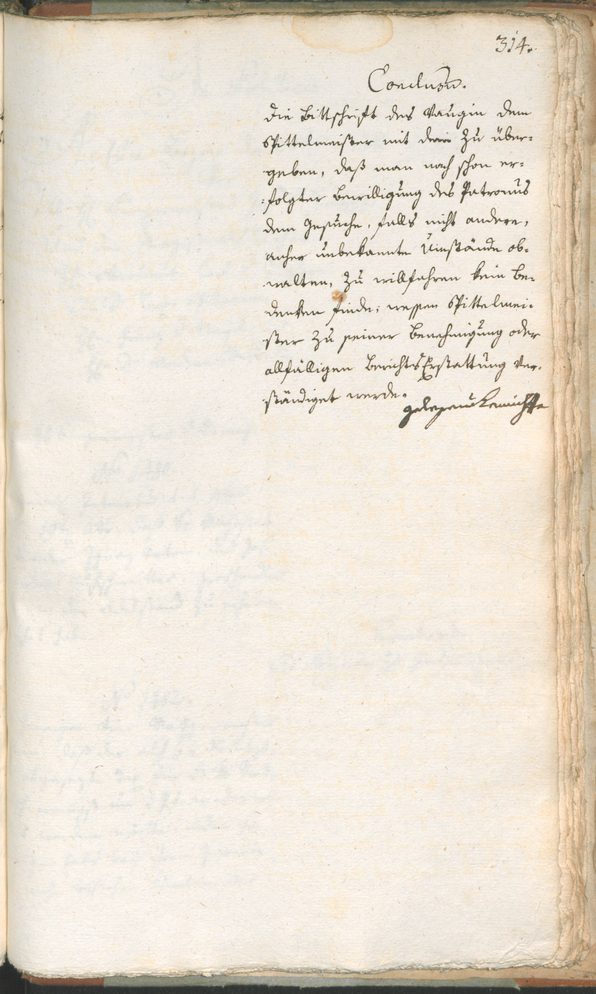 314.
Conclusum.
Die Bittschrift des Vaugin dem
Spittelmeister mit dem zu über-
geben, daß man nach schon er-
folgter Bewilligung des Patronus
dem Gesuche, falls nicht andere,
anher unbekannte Umstände ob-
walten, zu willfahren kein Be-
denken finde; wessen Spittelmei-
ster zu seiner Benehmigung oder
allfälligen BerichtsErstattung ver-
ständiget werde.